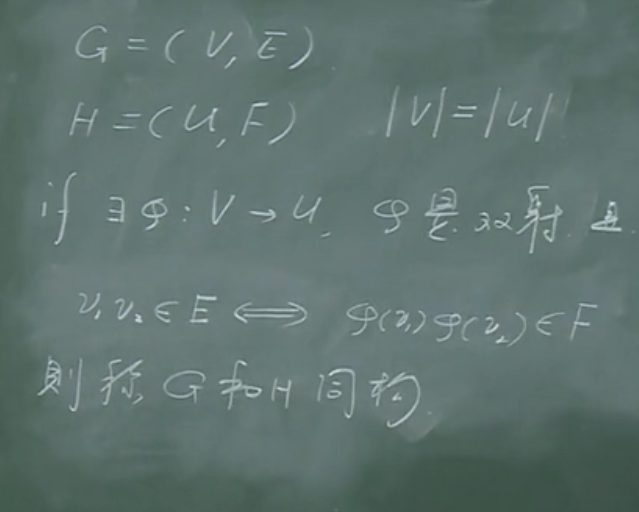 G = (V, E).
H = (U, F) |V| = |U|
if ∃ φ : V → U, φ是双射.且.
v₁v₂ ∈ E ⟺ φ(v₁)φ(v₂) ∈ F
则称 G 和 H 同构.